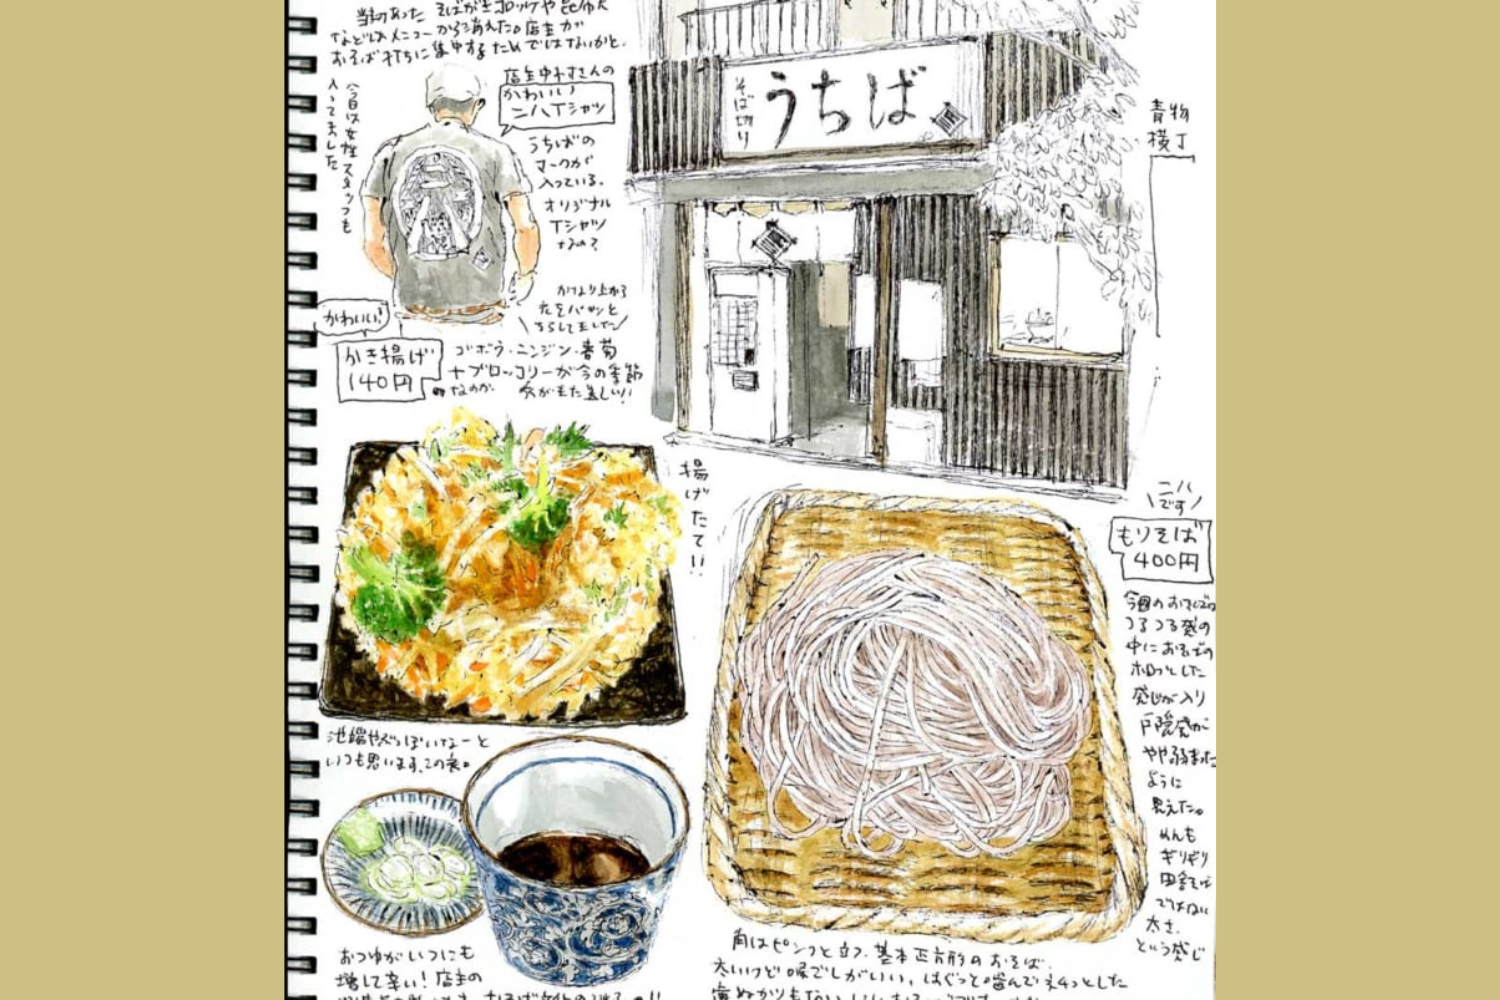 当初あった そばがきコロッケや昆布天
などはメニューから消えた。店主が
おそば打ちに集中するためではないかと。
店主中村さんの
かわいい
二八Tシャツ
うちばの
マークが
入っている。
オリジナル
Tシャツ
なの?
(今日は女性スタッフも
入ってました
かわいい!
かき揚げ
140円
花をパッと
ちらして
ゴボウ・ニンジン・春菊
+ブロッコリーが今の季節
なのか。
揚げたてい!
そば切り
うちば
青物
横丁
二八
です
もりそば
400円
今回のおそばは
つるつる感の
中におそばの
ホロっとした
感じが入り
戸隠感が
やや弱まった
ように
思えた。
めんも
ギリギリ
田舎そば
ではない
太さ、
という感じ
池端やぶっぽいなーと
いつも思います、この表。
おつゆがいつにも
増して辛い! 店主の
角はピンッと立つ、基本正方形のおそば。
太いけど喉ごしがいい、はぐっと噛んでネチっとした